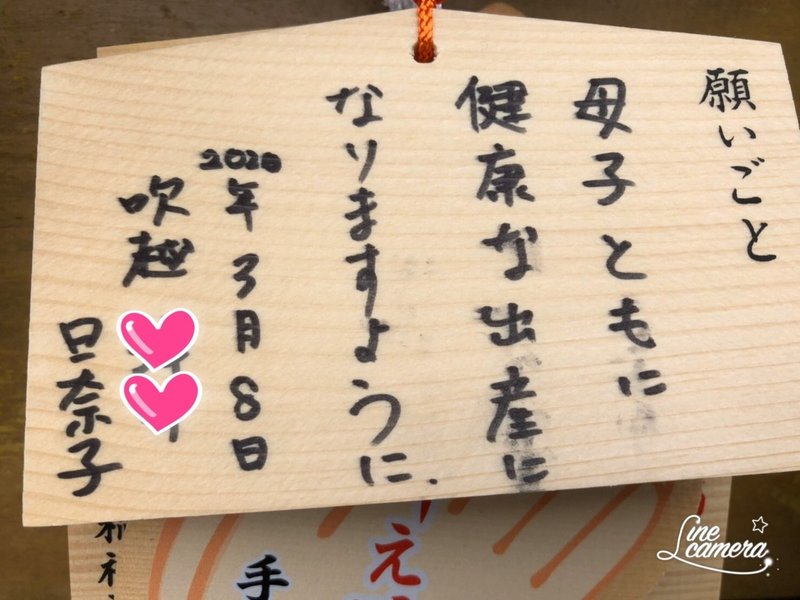 願いごと
母子ともに
健康な出産に
なりますように.
2020年3月8日
吹越
旦奈子
え
手
Line camera